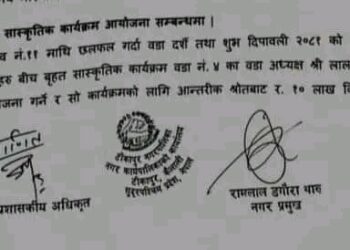 सास्कृतिक कार्यक्रम आयोजना सम्बन्धमा ।
नं.११ माथि छलफल गर्दा वडा दशैं तथा शुभ दिपावली २०८१ को
बीच बृहत सास्कृतिक कार्यक्रम वडा नं. ४ का वडा अध्यक्ष श्री लाल
गर्ने र सो कार्यक्रमको लागि आन्तरीक श्रोतबाट रु. १० लाख
टीकापुर नगरपालिका
नगर कार्यपालिकाको कार्यालय
टीकापुर, कैलाली
सुदूरपश्चिम प्रदेश, नेपाल
प्रशासकीय अधिकृत
रामलाल डगौरा थारु
नगर प्रमुख